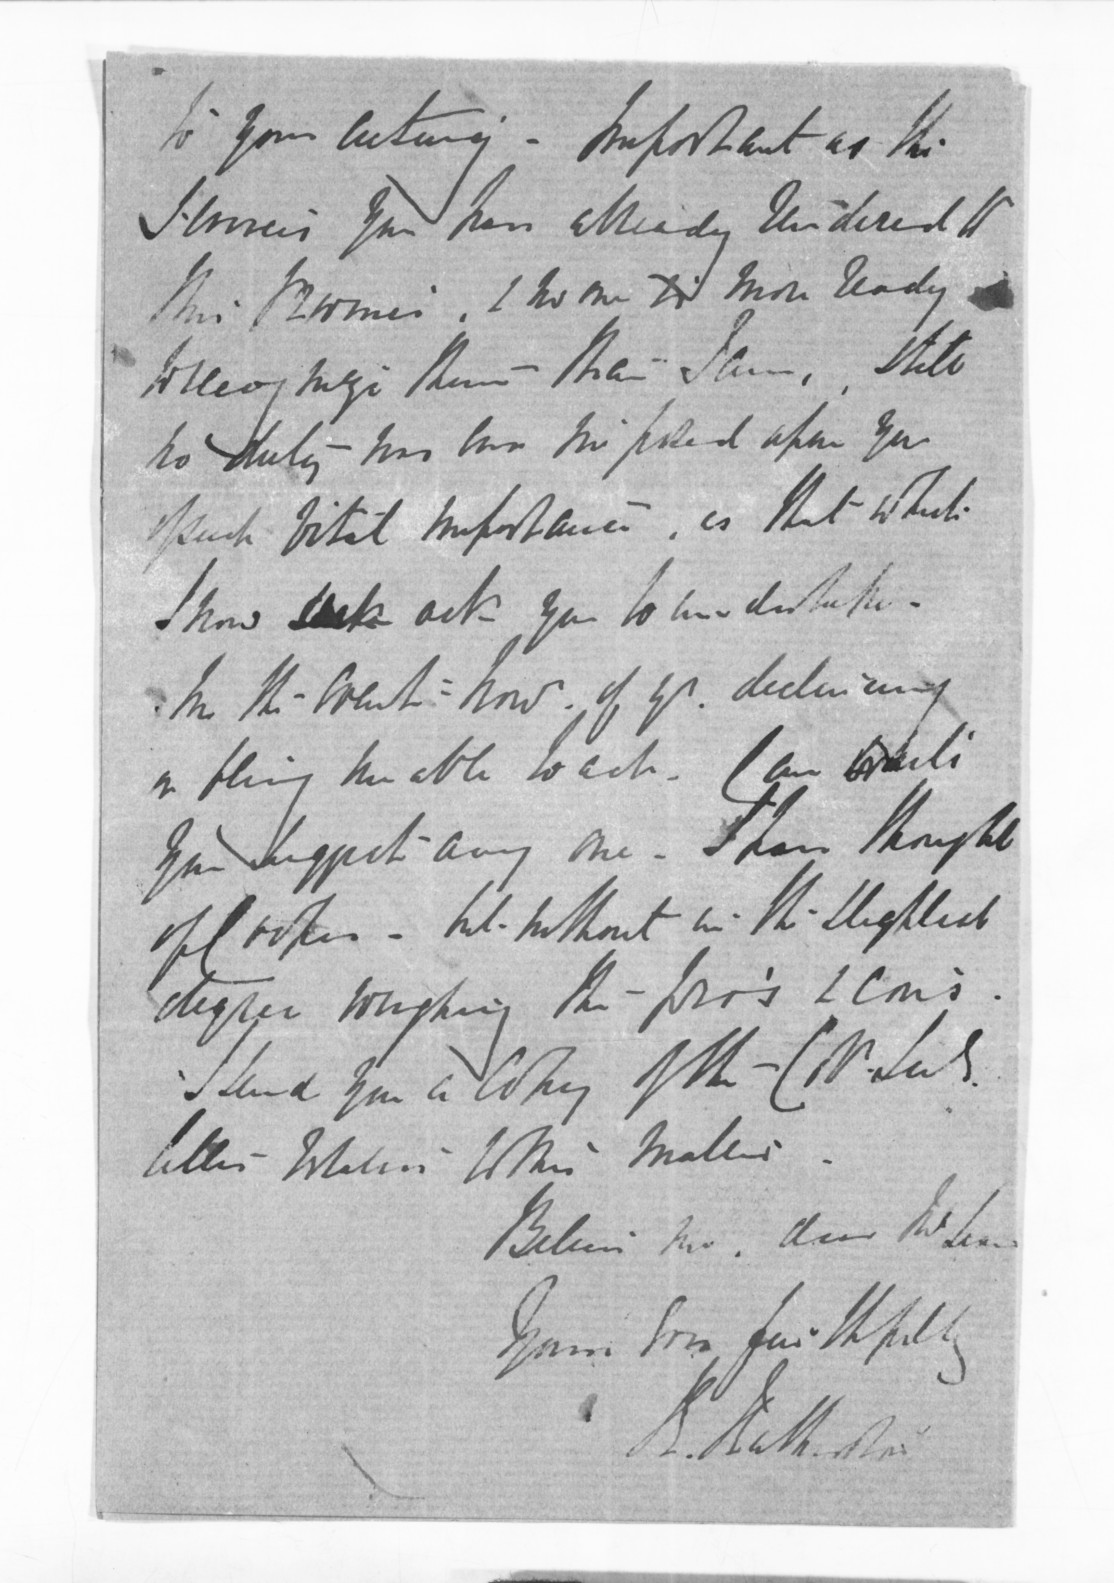 to your acting - Important as the
Services you have already rendered to
this Province, & no one is more ready
to recognize them than I am, still
no duty has been imposed upon you
of such vital importance, as that which
I now ask you to undertake -
In the event = how. of yr. declining
or being unable to act - Can
you suggest any one - I have thought
of Cooper - but without in the slightest
degree weighing the pro's & con's.
I send you a Copy of the - Col. Sec's.
letter relative to this matter -
Believe me, dear McLean
Yours very faithfully